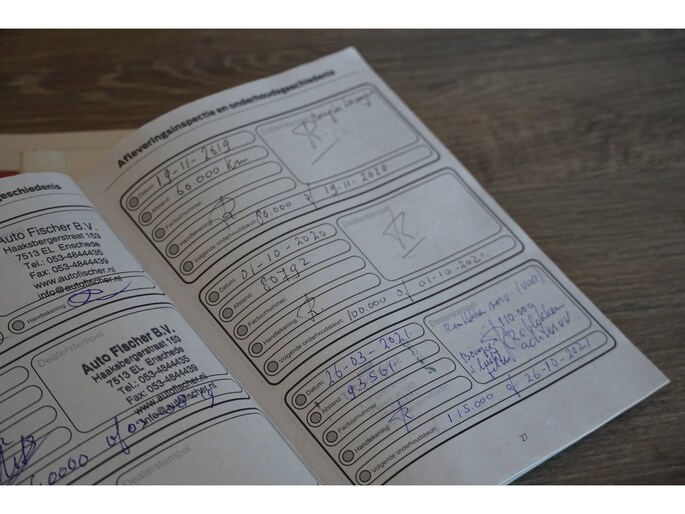 geschiedenis
Auto Fischer B.V.
Haaksbergerstraat 153
7513 EL Enschede
Tel.: 053-4844435
Fax: 053-4844439
www.autofischer.nl
info@autofischer.nl
Handtekening:
Dealerstempel
Auto Fischer B.V.
Haaksbergerstraat 153
7513 EL Enschede
Tel.: 053-4844435
Fax: 053-4844439
www.autofischer.nl
info@autofischer.nl
Dealerstempel
Afleveringsinspectie en onderhoudsgeschiedenis
Datum: 19-11-2019
Afstand: 60.000 Km
Factuurnummer
Handtekening:
Volgende onderhoudsbeurt: 80.000 of 19-11-2020
Dealerstempel
Datum: 01-10-2020
Afstand: 80792
Factuurnummer
Handtekening:
Volgende onderhoudsbeurt: 100.000 of 01-10-2021
Dealerstempel
Datum: 26-03-2021
Afstand: 93561
Factuurnummer
Handtekening:
Volgende onderhoudsbeurt: 115.000 of 26-10-2021
27